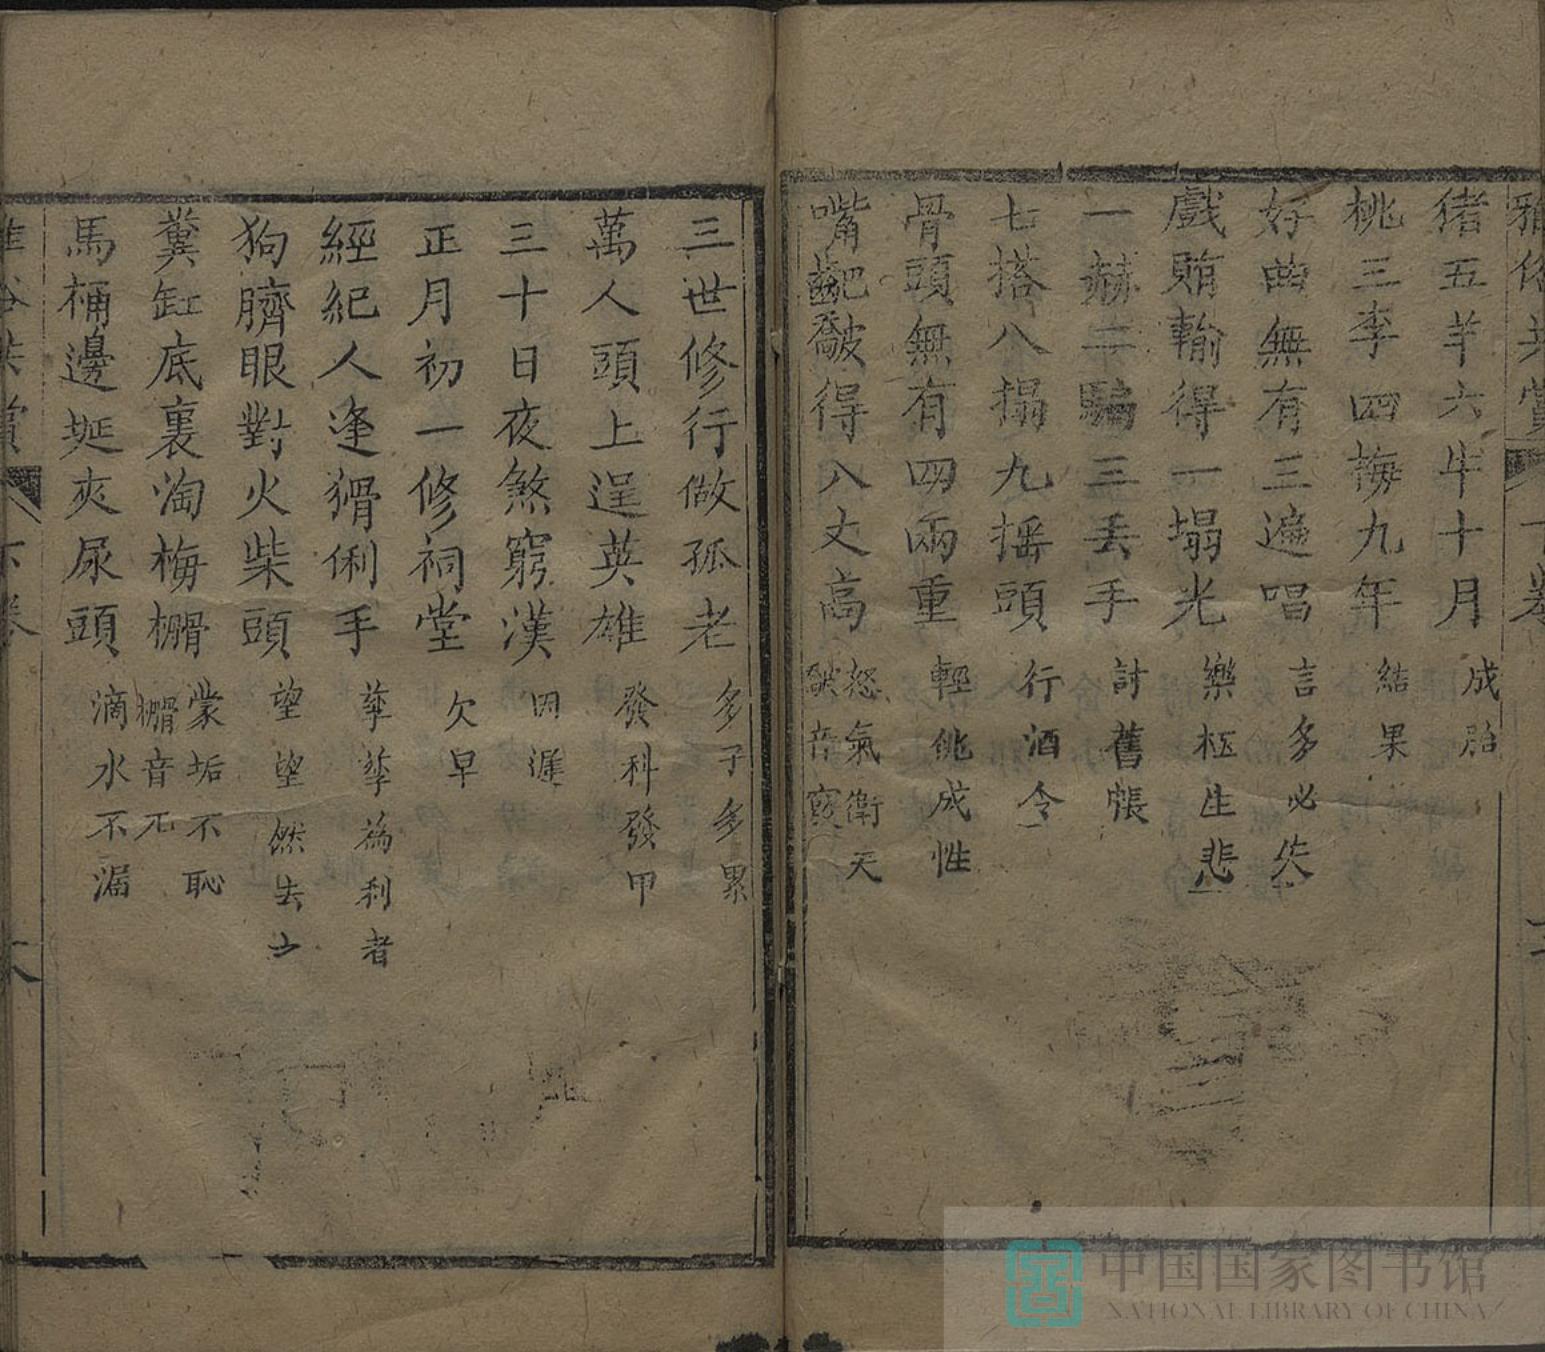 猪五羊六牛十月 成胎
桃三李四梅九年 結果
好曲無有三遍唱 言多必失
戲賭輸得一塌光 樂極生悲
一赫二騙三丟手 討舊帳
七搭八搨九搖頭 行酒令
骨頭無有四兩重 輕佻成性
嘴齙得八丈高 怒氣衝天
三世修行做孤老 多子多累
萬人頭上逞英雄 發科發甲
三十日夜煞窮漢 因遲
正月初一修祠堂 欠早
經紀人逢猾俐手 孳孳為利者
狗臍眼對火柴頭 望望然去之
糞缸底裏淘梅榾 蒙垢不恥
音兀
馬桶邊埏夾尿頭 滴水不漏
雅俗共賞 下卷
中国国家图书馆
NATIONAL LIBRARY OF CHINA